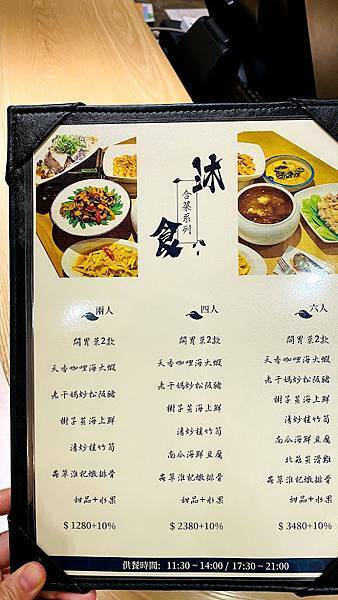 沐食
合菜系列
兩人
開胃菜2款
天香咖哩海大蝦
老干媽炒松阪豬
樹子蒸海上鮮
清炒桂竹筍
蟲草淮杞燉排骨
甜品+水果
$ 1280+10%
四人
開胃菜2款
天香咖哩海大蝦
老干媽炒松阪豬
樹子蒸海上鮮
清炒桂竹筍
南瓜海鮮豆腐
蟲草淮杞燉排骨
甜品+水果
$ 2380+10%
六人
開胃菜2款
天香咖哩海大蝦
老干媽炒松阪豬
樹子蒸海上鮮
清炒桂竹筍
南瓜海鮮豆腐
北菇蒸滑雞
蟲草淮杞燉排骨
甜品+水果
$ 3480+10%
供餐時間: 11:30 ~ 14:00 / 17:30 ~ 21:00